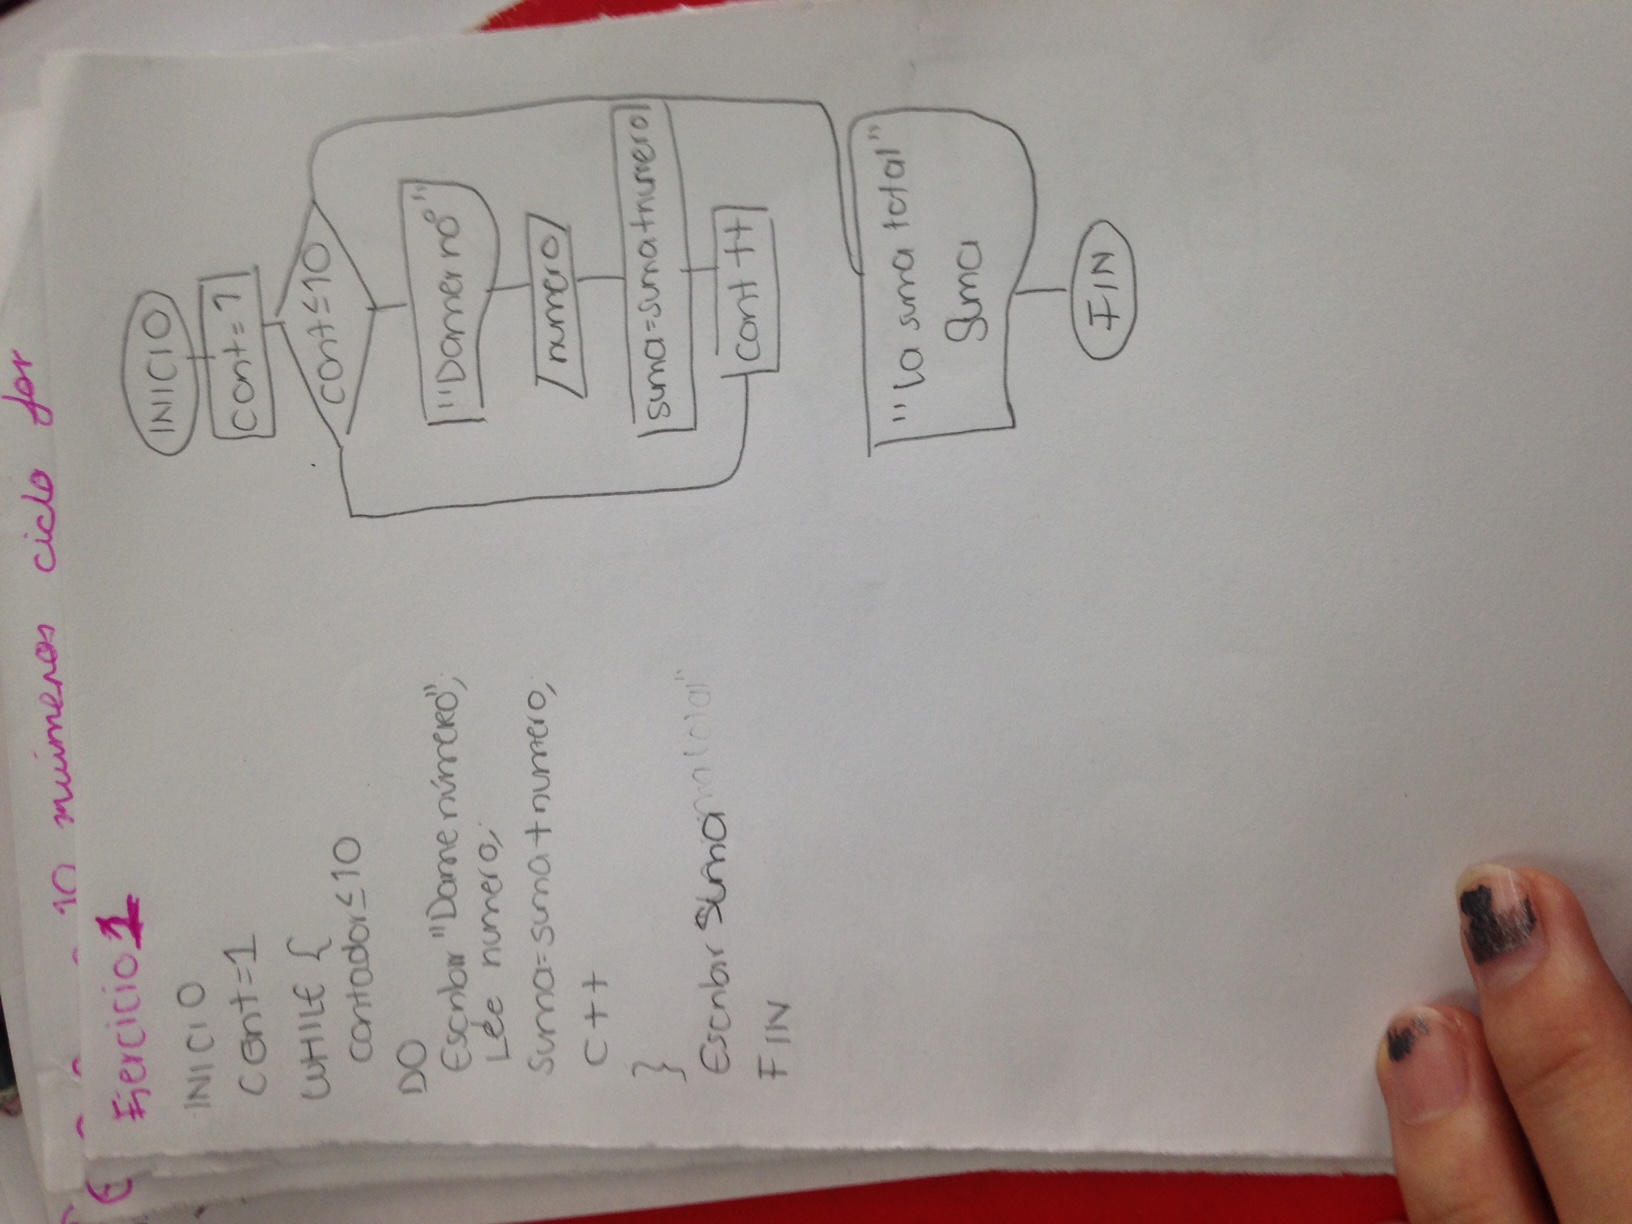 10 números ciclo for
Ejercicio 1
INICIO
Cont=1
WHILE {
contador≤10
DO
Escribir "Dame número";
Lee numero;
suma=suma+numero;
C++
}
Escribir suma total"
FIN
INICIO
Cont=1
Cont≤10
"Dame nº"
numero
suma=suma+numero
Cont++
"la suma total"
Suma
FIN